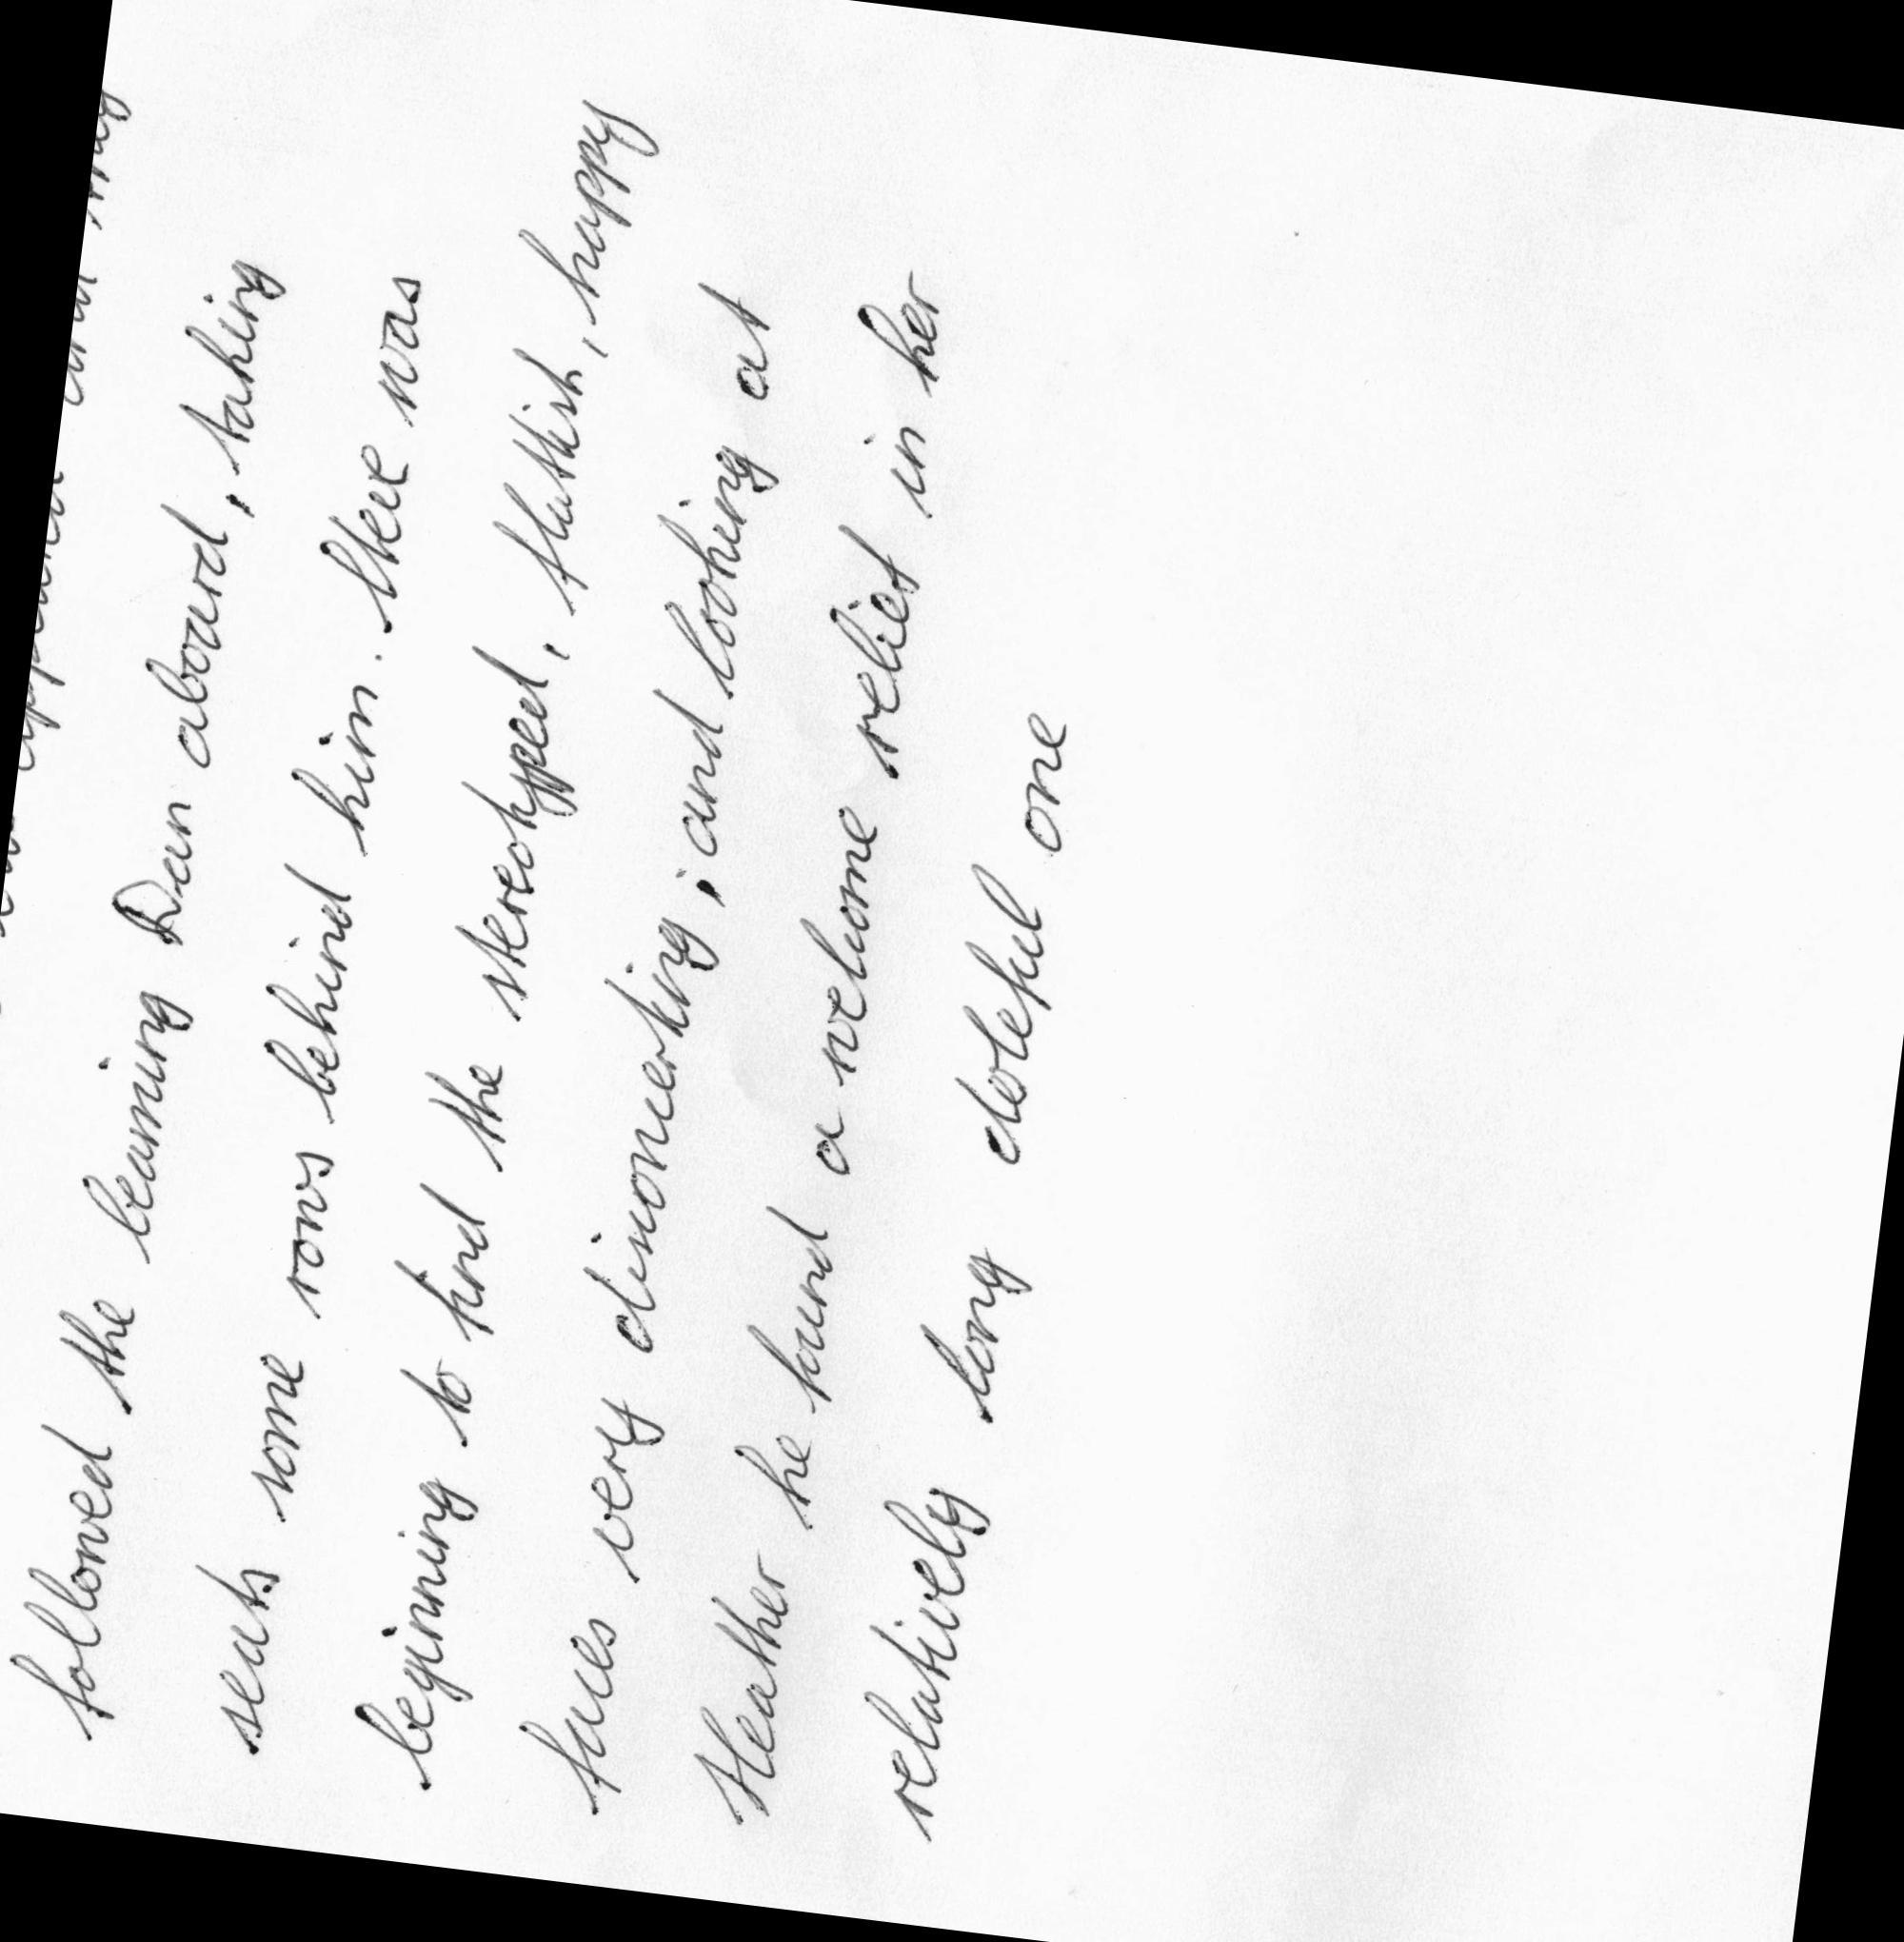 and
followed the beaming Dan aboard, taking
seats some rows behind him. Steve was
beginning to find the stereotyped, fattish, happy
faces very disconcerting, and looking at
Heather he found a welcome relief in her
relatively long doleful one